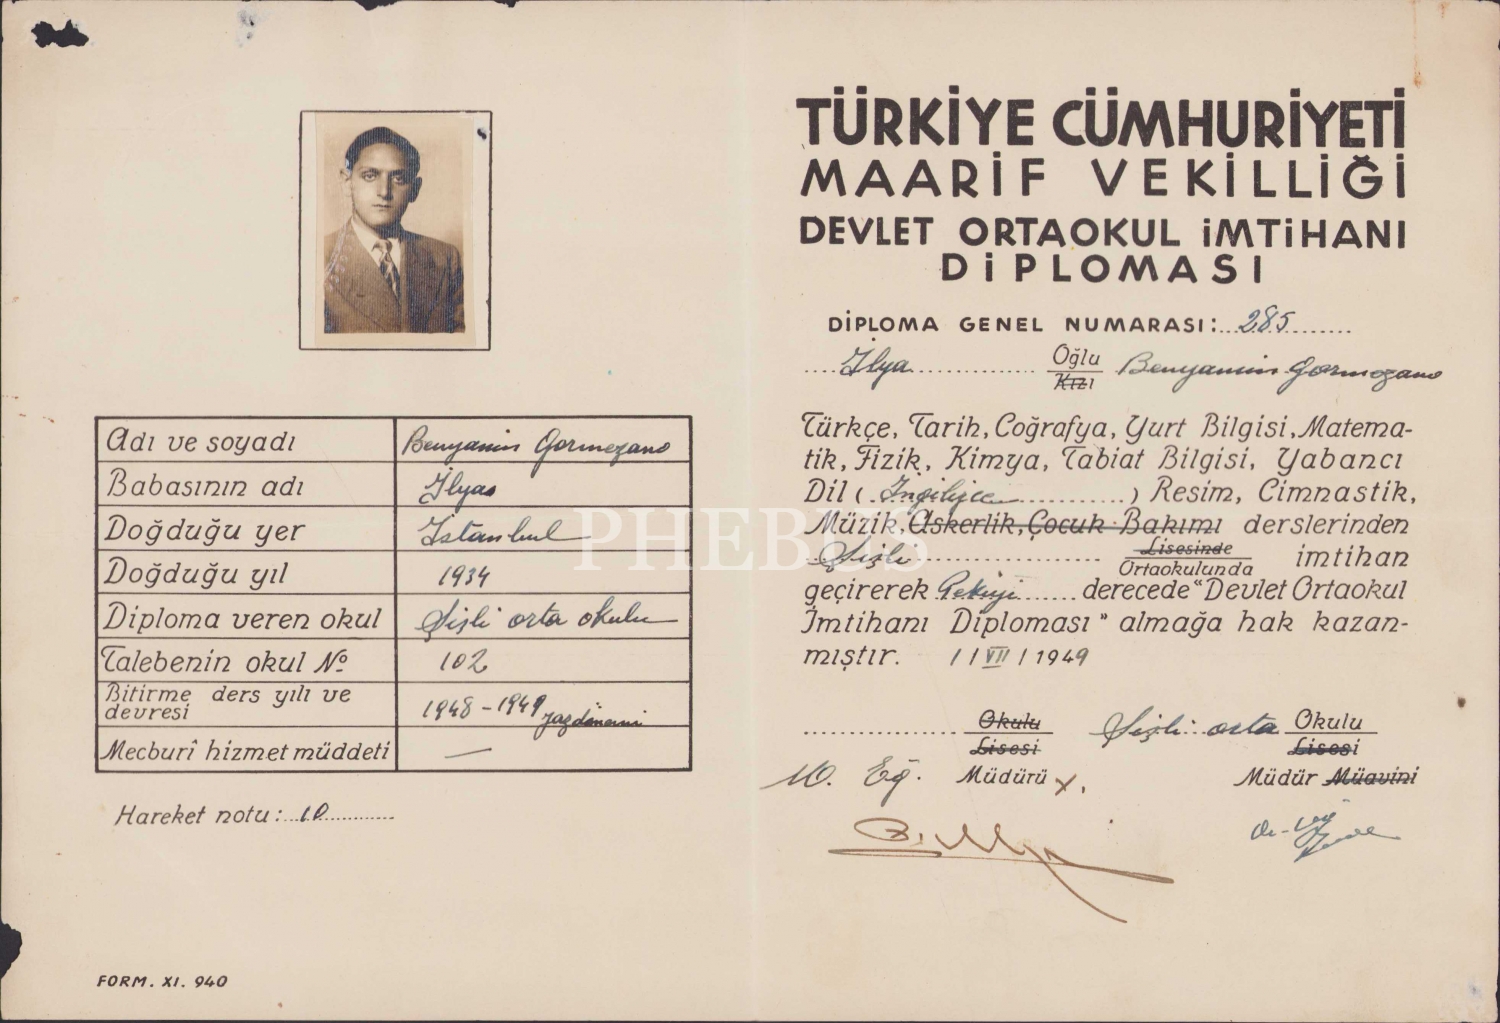 TÜRKİYE CÜMHURİYETİ
MAARİF VEKİLLİĞİ
DEVLET ORTAOKUL İMTİHANI
DİPLOMASI
DİPLOMA GENEL NUMARASI: 285
İlya Oğlu Kızı Benyamin Gormezano
Türkçe, Tarih, Coğrafya, Yurt Bilgisi, Matema-
tik, Fizik, Kimya, Tabiat Bilgisi, Yabancı
Dil ( İngilizce ) Resim, Cimnastik,
Müzik, Askerlik, Çocuk Bakımı derslerinden
Şişli Lisesinde Ortaokulunda imtihan
geçirerek Pekiyi derecede "Devlet Ortaokul
İmtihanı Diploması" almağa hak kazan-
mıştır. 1 / VII / 1949
Okulu Lisesi Şişli orta Okulu Lisesi
M. Eğ. Müdürü Müdür Müavini
Adı ve soyadı Benyamin Gormezano
Babasının adı İlyas
Doğduğu yer İstanbul
Doğduğu yıl 1934
Diploma veren okul Şişli orta okulu
Talebenin okul № 102
Bitirme ders yılı ve devresi 1948-1949 yaz dönemi
Mecburî hizmet müddeti —
Hareket notu: 10
FORM. XI. 940
PHEBUS